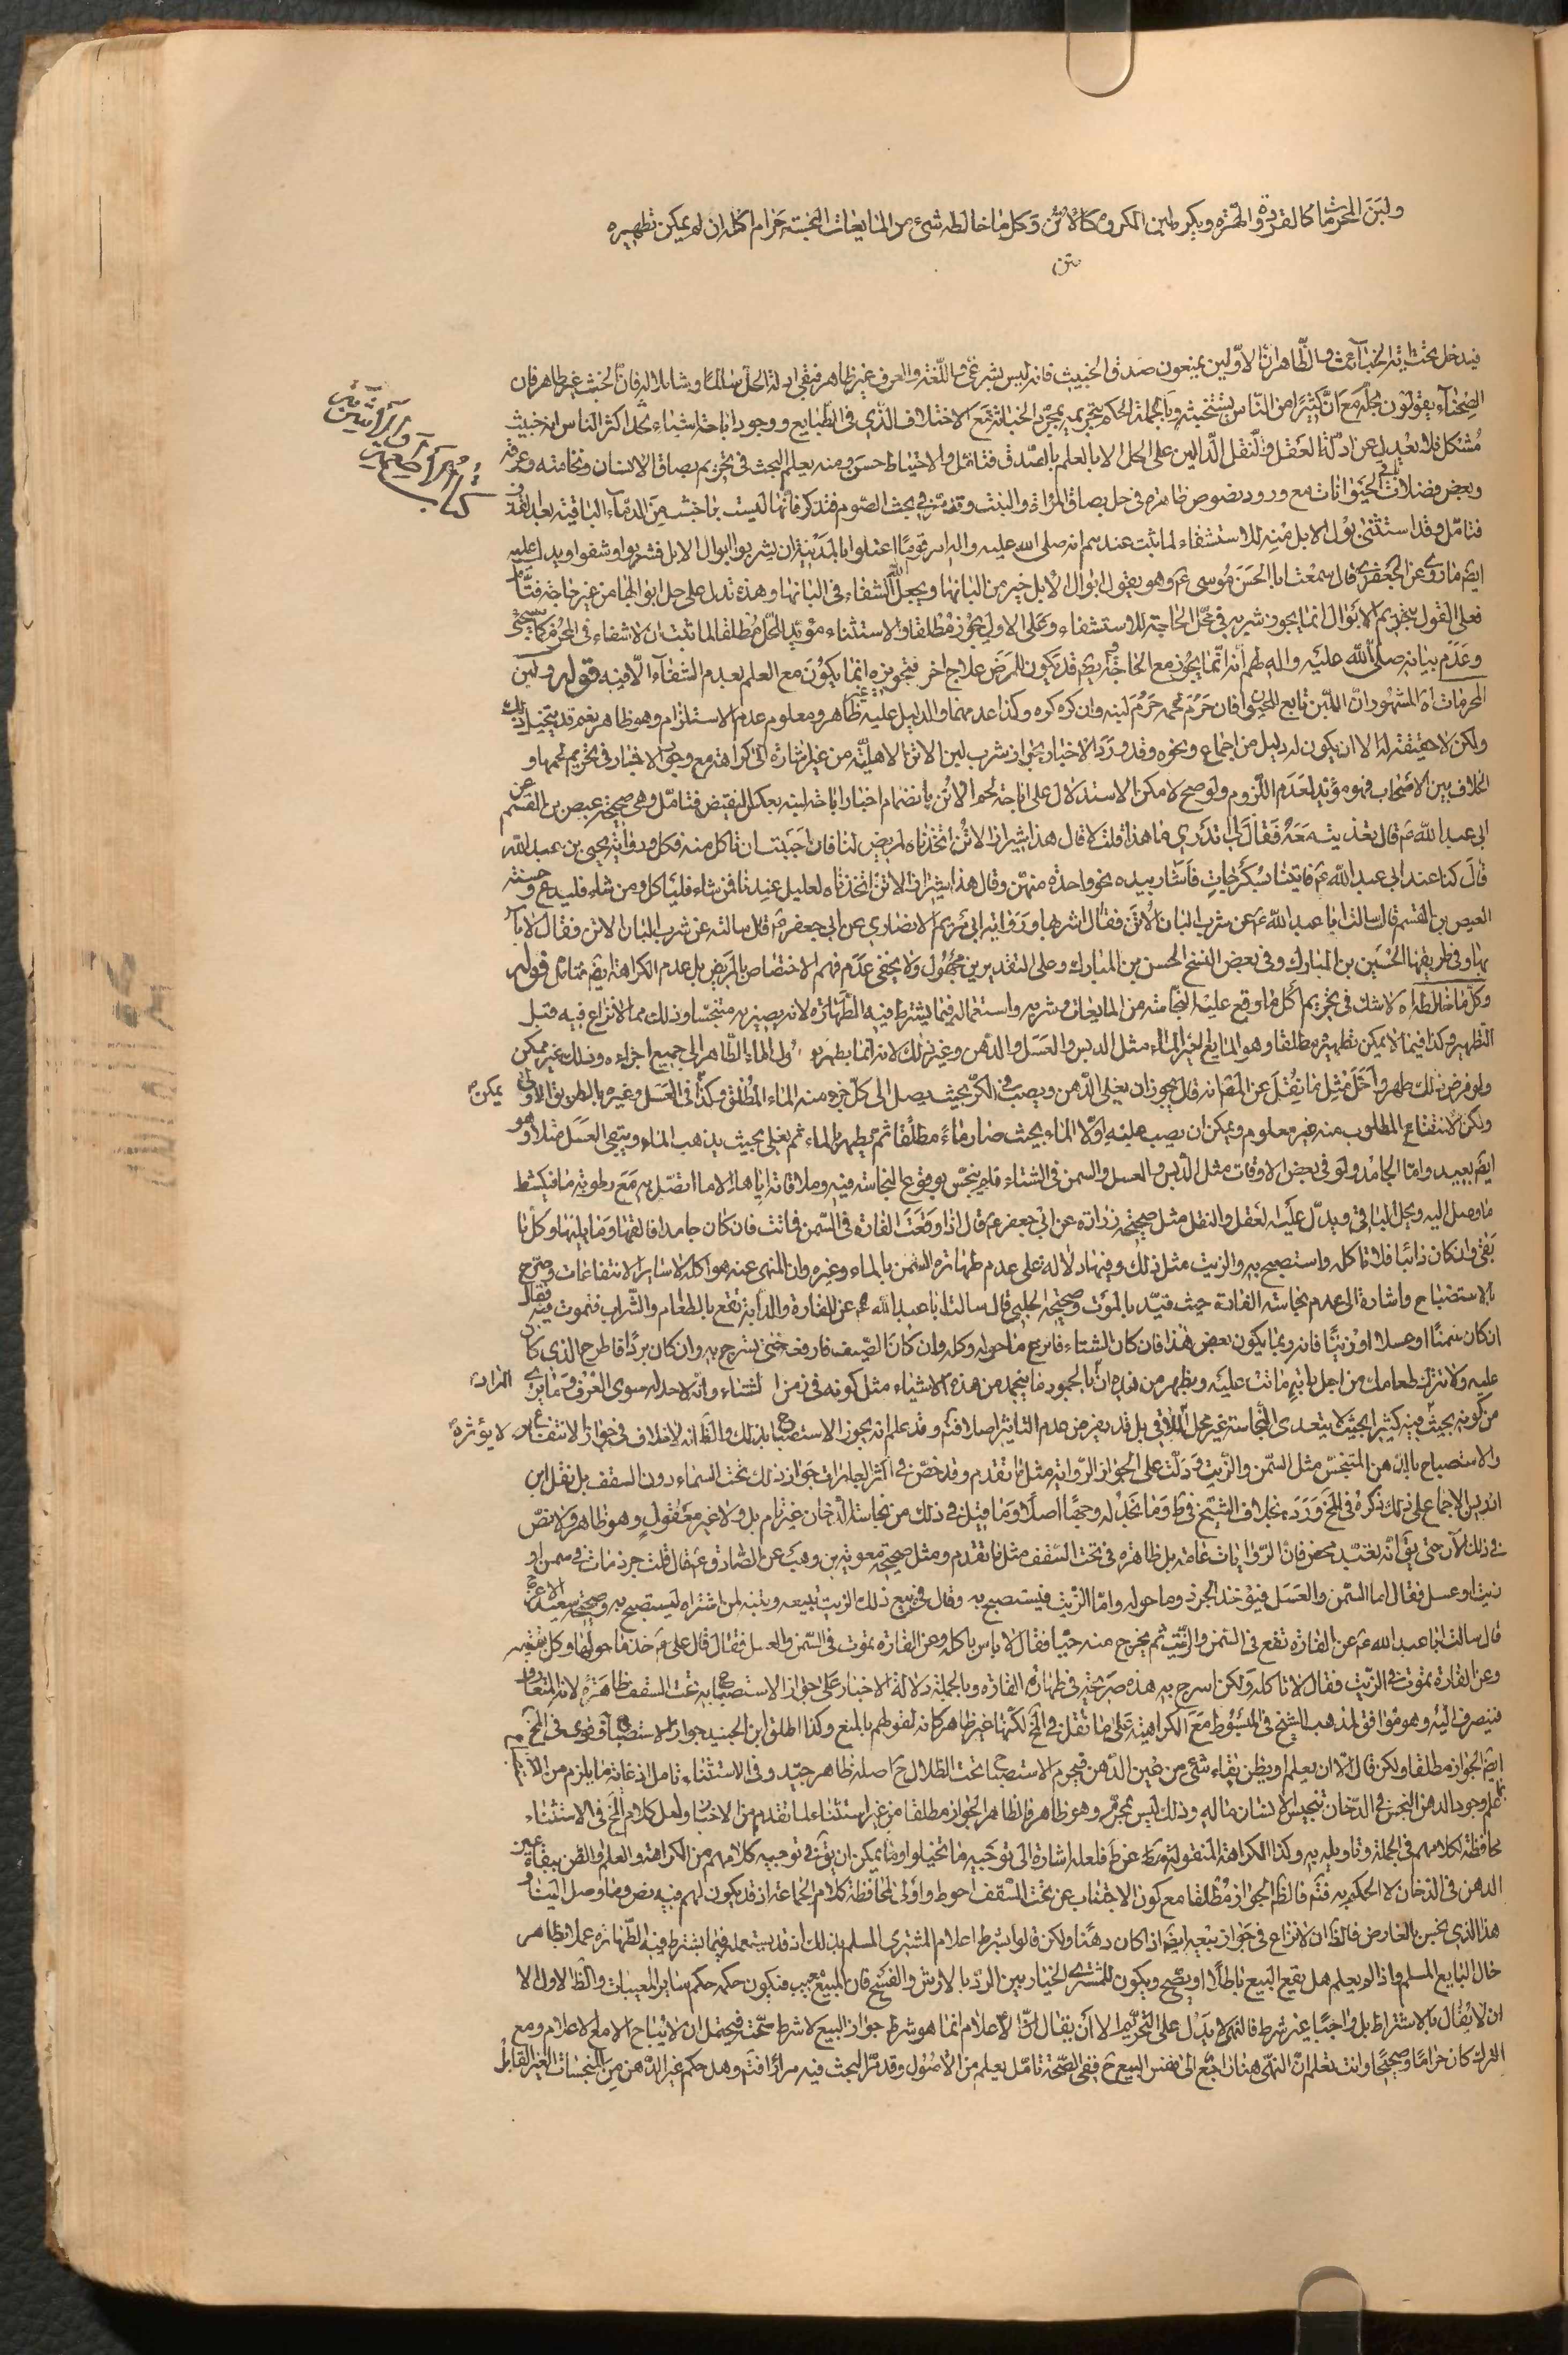 ولبن المحرمات كالقردة والهرة ويكره لبن المكروه كالاتن وكل ما خالطه شئ من المايعات النجسة حرام اكله ان لم يمكن تطهيره
متن
كتاب الاطعمة والاشربة
فيدخل تحت اية الخبائث والظاهر ان الاولين يمنعون صدق الخبيث فانه ليس بشرعي واللغة والعرف غير ظاهر فبقي ادلة الحل سالما وشاملا له فان الخبث غير ظاهر فان
الصحناء يقولون بحله مع ان كثيرا من الناس يستخبثه وبالجملة الحكم بتحريمه بمجرد الخباثة مع الاختلاف الذي في الطبايع ووجود اباحة اشياء نجد اكثر الناس انه خبيث
مشكل فلا يعدل عن ادلة العقل والنقل الدالين على الحل الا بالعلم بالصدق فتامل والاحتياط حسن ومنه يعلم البحث في تحريم بصاق الانسان ونخامته وعرقه
وبعض فضلات الحيوانات مع ورود نصوص ظاهرة في حل بصاق المراة والبنت وقد مر في بحث الصوم فتذكر فانها ليست باخبث من الدماء الباقية بعد القذف
فتامل وقد استثنى بول الابل منه للاستشفاء لما ثبت عندهم انه صلى الله عليه واله امر قوما اعتلوا بالمدينة ان يشربوا ابوال الابل فشربوا وشفوا ويدل عليه
ايضا ما روي عن الجعفري قال سمعت ابا الحسن موسى ع وهو يقول ابوال الابل خير من البانها ويجعل الله الشفاء في البانها وهذه تدل على حل ابوالها من غير حاجة فتامل
فعلى القول بتحريم الابوال انما يجوز شربه في محل الحاجة للاستشفاء وعلى الاولي يجوز مطلقا والاستثناء مؤيد الحل مطلقا لما ثبت ان لا شفاء في المحرم كما سيجئ
وعدم بيانه صلى الله عليه واله لهم انه انما يجوز مع الحاجة وايضا قد يكون للمرض علاج اخر فتجويزه انما يكون مع العلم بعدم الشفاء الا فيه قوله ولبن
المحرمات اه المشهور ان اللبن تابع للحيوان فان حرم لحمه حرم لبنه وان كره كره وكذا عدمهما والدليل عليه غير ظاهر ومعلوم عدم الاستلزام وهو ظاهر نعم قد يتخيل ذلك
ولكن لا حقيقة له الا ان يكون له دليل من اجماع ونحوه وقد ورد الاخبار بجواز شرب لبن الاتن الاهلية من غير اشارة الى كراهة مع وجود الاخبار في تحريم لحمها و
الخلاف بين الاصحاب فهو مؤيد لعدم اللزوم ولو صح لامكن الاستدلال على اباحة لحم الاتن بانضمام اخبار اباحة لبنه بعكس النقيض فتامل وهي صحيحة عيص بن القسم عن
ابي عبد الله ع قال تغذيت معه فقال لي اتدري ما هذا قلت لا قال هذا شيراز الاتن اتخذناه لمريض لنا فان احببت ان تاكل منه فكل ورواية يحيى بن عبد الله
قال كنا عند ابي عبد الله ع فاتينا بسكرجات فاشار بيده نحو واحدة منهن وقال هذا شيراز الاتن اتخذناه لعليل عندنا فمن شاء فلياكل ومن شاء فليدع وحسنة
العيص بن القسم قال سالت ابا عبد الله ع عن شرب البان الاتن فقال اشربها ورواية ابي مريم الانصاري عن ابي جعفر ع قال سالته عن شرب البان الاتن فقال لا باس
بها وفي طريقها الحسين بن المبارك وفي بعض النسخ الحسن بن المبارك وعلى التقديرين مجهول ولا يخفى عدم فهم الاختصاص بالمريض بل عدم الكراهة ايضا فتامل قوله
وكل ما خالطه اه لا شك في تحريم اكل ما وقع عليه النجاسة من المايعات وشربه واستعماله فيما يشترط فيه الطهارة لانه يصير به متنجسا وذلك مما لا نزاع فيه قبل
التطهير وكذا فيما لا يمكن تطهيره مطلقا وهو المايع لغير الماء مثل الدبس والعسل والدهن وغير ذلك لانه انما يطهر بوصول الماء الطاهر الى جميع اجزاءه وذلك غير ممكن
ولو فرض ذلك طهر واحل مثل ما نقل عن المص انه قال يجوز ان يغلى الدهن ويصب في الكر بحيث يصل الى كل جزء منه الماء المطلق وكذا في العسل وغيره بالطريق الاولى يمكن
ولكن الانتفاع المطلوب منه غير معلوم ويمكن ان يصب عليه اولا الماء بحيث صار ماء مطلقا ثم يطهر بالماء ثم يغلى بحيث يذهب الماء ويبقى العسل مثلا وهو
ايضا بعيد واما الجامد ولو في بعض الاوقات مثل الدبس والعسل والسمن في الشتاء فلم ينجس بوقوع النجاسة فيه وملاقاته اياها الا ما اتصل به مع رطوبة ما فيكشط
ما وصل اليه ويحل الباقي ويدل عليه العقل والنقل مثل صحيحة زرارة عن ابي جعفر ع قال اذا وقعت الفارة في السمن فماتت فان كان جامدا فالقها وما يليها وكل ما
بقي وان كان ذائبا فلا تاكله واستصبح به والزيت مثل ذلك وفيها دلالة على عدم طهارة السمن بالماء وغيره وان المنهي عنه هو اكله لا ساير الانتفاعات وصرح
بالاستصباح واشارة الى عدم نجاسة الفارة حيث قيد بالموت وصحيحة الحلبي قال سالت ابا عبد الله ع عن الفارة والدابة تقع بالطعام والشراب فتموت فيه فقال
ان كان سمنا او عسلا او زيتا فانه ربما يكون بعض هذا فان كان الشتاء فانزع ما حوله وكله وان كان الصيف فارفعه حتى تسرج به وان كان بردا فاطرح الذي كان
عليه ولا تترك طعامك من اجل دابة ماتت عليه ويظهر من هذه ان المراد بالجمود ما ينجمد من هذه الاشياء مثل كونه في زمن الشتاء وانه لا حد له سوى العرف وما يرى
من كونه بحيث فيه كثيرا بحيث لا يتعدى النجاسة غير محل الملاقي بل قد يفرض عدم التاثير اصلا فتم وقد علم انه يجوز الاستصباح بذلك والظ انه لا خلاف في جواز الانتفاع به لا يؤثره
والاستصباح بالدهن المتنجس مثل السمن والزيت ودلت على الجواز الرواية مثل ما تقدم وقد خص في اكثر العبارات جواز ذلك تحت السماء دون السقف بل نقل ابن
ادريس الاجماع على ذلك ذكره في المخ ورد بخلاف الشيخ في ط وما نجد له وجها اصلا وما قيل في ذلك من نجاسة الدخان غير تام بل ولا غير معقول وهو ظاهر ولا نص
في ذلك الان حتى يق انه تعبد محض فان الروايات عامة بل ظاهرة في تحت السقف مثل ما تقدم ومثل صحيحة معوية بن وهب عن الصادق ع قال قلت جرذ مات في سمن او
زيت او عسل فقال اما السمن والعسل فيؤخذ الجرذ وما حوله واما الزيت فيستصبح به وقال في بيع ذلك الزيت تبيعه وتبينه لمن اشتراه ليستصبح به وصحيحة سعيد الاعرج
قال سالت ابا عبد الله ع عن الفارة تقع في السمن والزيت ثم يخرج منه حيا فقال لا باس باكله وعن الفارة تموت في السمن والعسل فقال قال علي ع خذ ما حولها وكل بقيته
وعن الفارة تموت في الزيت فقال لا تاكله ولكن اسرج به هذه صريحة في طهارة الفارة وبالجملة دلالة الاخبار على جواز الاستصباح به تحت السقف ظاهرة لانه المتعارف
فينصرف اليه وهو موافق لمذهب الشيخ في المبسوط مع الكراهية على ما نقل في المخ لكنها غير ظاهر كانه لقولهم بالمنع وكذا اطلق ابن الجنيد جواز الاستصباح وقوى في المخ
ايضا الجواز مطلقا ولكن قال الا ان يعلم او يظن بقاء شئ من عين الدهن فيحرم الاستصباح تحت الظلال ح اصله ظاهر جيد وفي الاستثناء تامل اذ غاية ما يلزم من الا
علم وجود الدهن النجس في الدخان تنجيس الانسان ماله وذلك ليس بمحرم وهو ظاهر فالظاهر الجواز مطلقا من غير استثناء لما تقدم من الاخبار ولعل كلام المخ في الاستثناء
محافظة لكلامهم في الجملة وتاويله به وكذا الكراهة المنقولة عن ط فلعله اشارة الى توجيه ما تخيلوا وما يمكن ان يق في توجيه كلامهم من الكراهة والعلم والظن ببقاء عين
الدهن في الدخان لا الحكم به فتم فالظ الجواز مطلقا مع كون الاجتناب عن تحت السقف احوط واولى لمحافظة كلام الجماعة اذ قد يكون لهم فيه نص وما وصل الينا و
هذا الذي نجس بالعارض فالظ ان لا نزاع في جواز بيعه ايضا اذا كان دهنا ولكن قالوا بشرط اعلام المشتري المسلم بذلك اذ قد يستعمله فيما يشترط فيه الطهارة عملا بظاهر
حال البايع المسلم واذا لم يعلم هل يقع البيع باطلا او يصح ويكون للمشتري الخيار بين الرد بالارش والفسخ فان المبيع معيب فيكون حكمه حكم ساير المعيبات والظ الاول الا
ان لا يقال بالاشتراط بل واجبا غير شرط فالنهي لا يدل على التحريم الا ان يقال ان الاعلام انما هو شرط جواز البيع لا شرط صحته فيحتمل ان لا يباح الا مع الاعلام ومع
الترك كان حراما وصحيحا وانت تعلم ان النهي هنا راجع الى نفس البيع ح ففي الصحة تامل يعلم من الاصول وقد مر البحث فيه مرارا فتم وهل حكم غير الدهن من النجسات الغير القابل